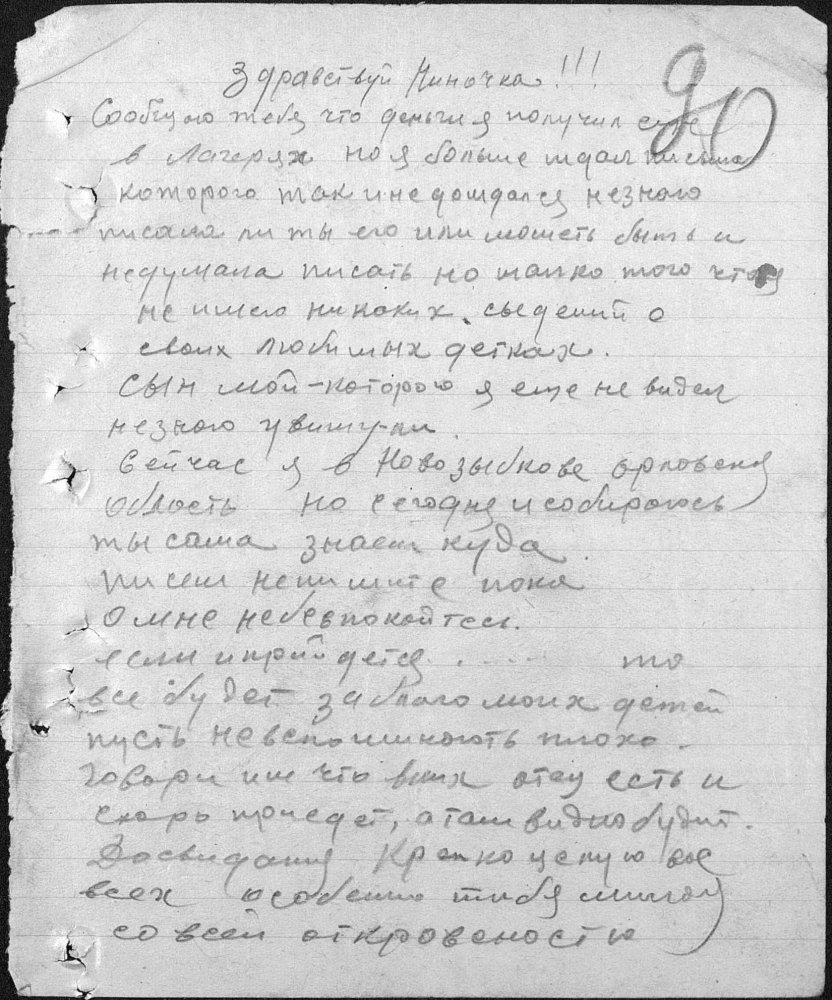 Здравствуй Ниночка!!!
90
Сообщаю тебя что деньги я получил еще
в Лагерях но я больше ждал письма
которого так и не дождался незнаю
писала ли ты его или можеть быть и
недумала писать но только того что я
не имею никаких сведений о
своих любимых детках.
Сын мой-которого я еще не видел
незнаю увижу-ли.
Сейчас я в Новозыбкове орловская
область но сегодня и собираюсь
ты сама знаеш куда
писем непишите пока
о мне небезпокойтесь.
если и прийдется..... то
все будет за благо моих детей
пусть невспоминають плохо.
Говори им что в них отец есть и
скоро приедет, а там видно будит.
Досвидания Крепко целую вас
всех особенно тибя милая
со всей откровеностю